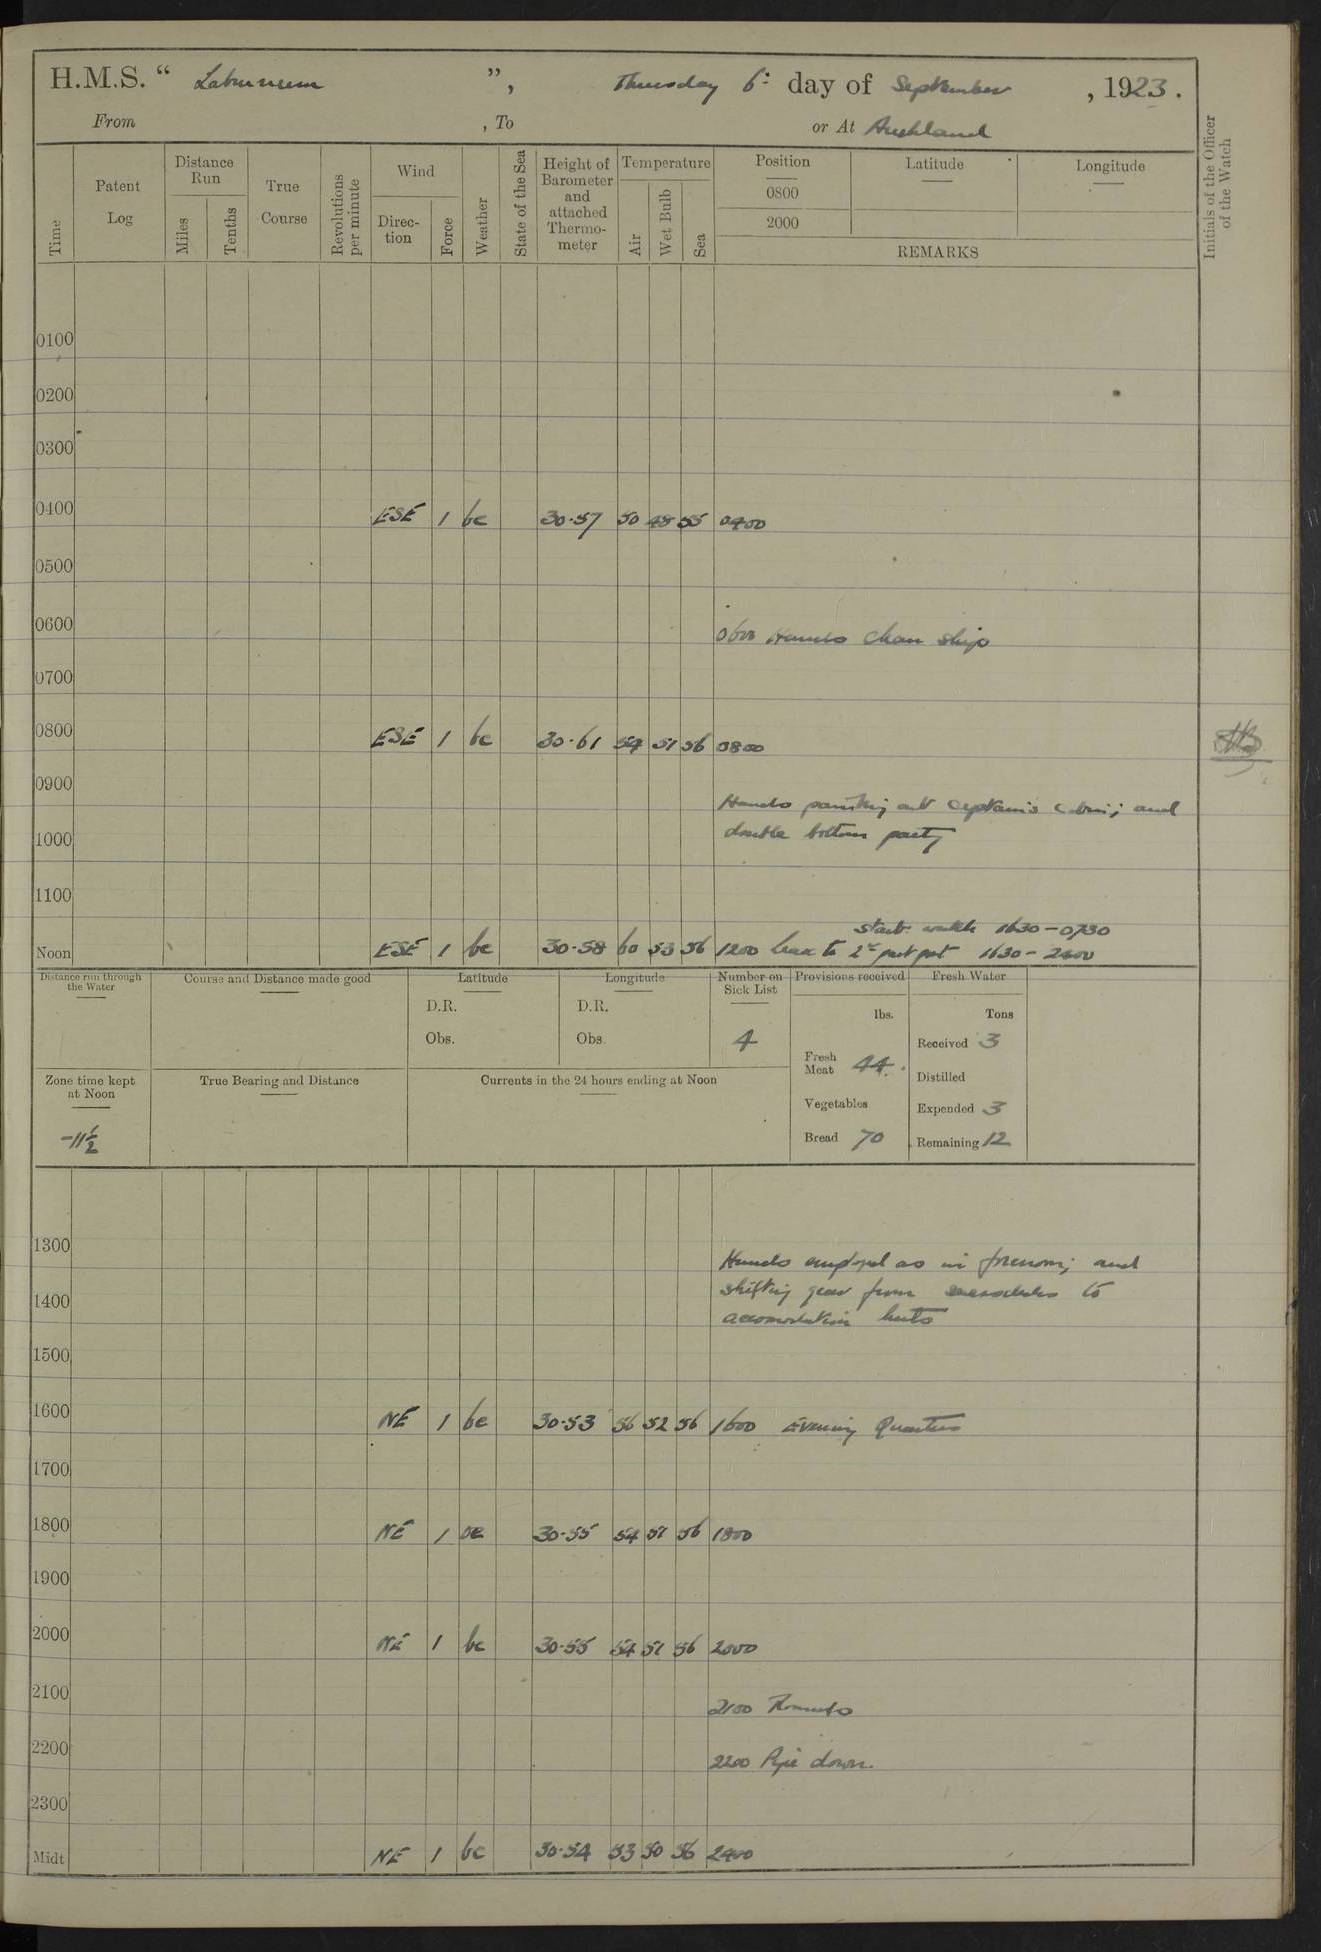 H.M.S. “ Laburnum ”, Thursday 6: day of September, 1923.
From , To or At Auckland
Time
Patent Log
Distance Run
Miles
Tenths
True Course
Revolutions per minute
Wind
Direc-tion
Force
Weather
State of the Sea
Height of Barometer and attached Thermo-meter
Temperature
Air
Wet Bulb
Sea
Position
0800
2000
Latitude
Longitude
REMARKS
Initials of the Officer of the Watch
0100
0200
0300
0400 ESE 1 bc 30·57 50 48 55 0400
0500
0600 0600 Hands clean ship
0700
0800 ESE 1 bc 30·61 54 51 56 0800
0900 Hands painting out Captain's cabin; and
double bottom party
1000
1100
Starb. watch 1630 – 0730
Noon ESE 1 bc 30·58 60 53 56 1200 Leave to 2nd part port 1630 – 2400
Distance run through the Water
Course and Distance made good
Latitude
D.R.
Obs.
Longitude
D.R.
Obs.
Number on Sick List
4
Provisions received
lbs.
Fresh Meat 44.
Vegetables
Bread 70
Fresh Water
Tons
Received 3
Distilled
Expended 3
Remaining 12
Zone time kept at Noon
-11½
True Bearing and Distance
Currents in the 24 hours ending at Noon
1300 Hands employed as in forenoon; and
shifting gear from to
1400 accomodation huts
1500
1600 NE 1 bc 30·53 56 52 56 1600 Evening Quarters
1700
1800 NE 1 bc 30·55 54 51 56 1800
1900
2000 NE 1 bc 30·55 54 51 56 2000
2100 2100 Rounds
2200 2200 Pipe down.
2300
Midt NE 1 bc 30·54 53 50 56 2400